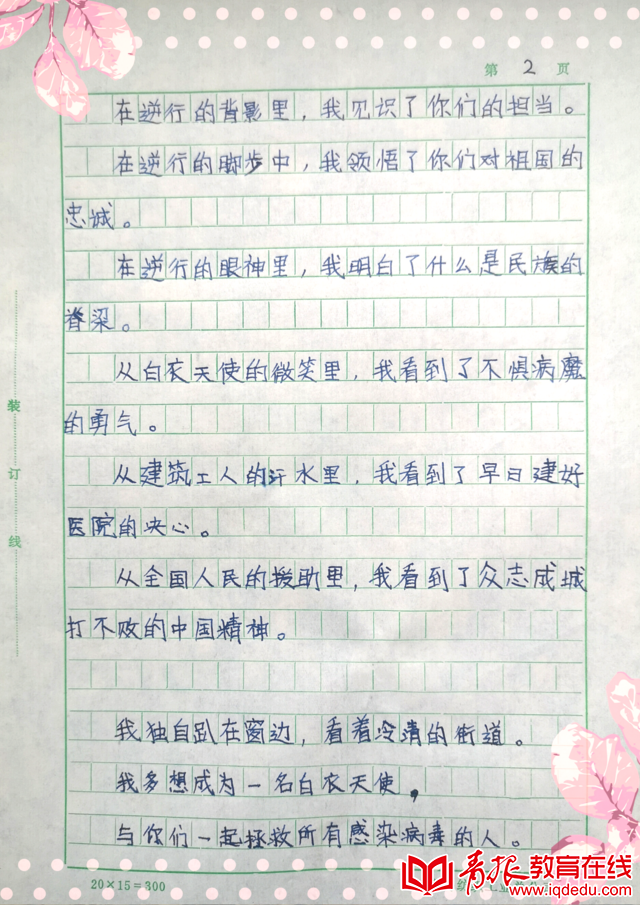 第 2 页
在逆行的背影里，我见识了你们的担当。
在逆行的脚步中，我领悟了你们对祖国的
忠诚。
在逆行的眼神里，我明白了什么是民族的
脊梁。
从白衣天使的微笑里，我看到了不惧病魔
的勇气。
从建筑工人的汗水里，我看到了早日建好
医院的决心。
从全国人民的援助里，我看到了众志成城
打不败的中国精神。
我独自趴在窗边，看着冷清的街道。
我多想成为一名白衣天使，
与你们一起拯救所有感染病毒的人。
装
订
线
20×15=300
青报教育在线
www.iqdedu.com